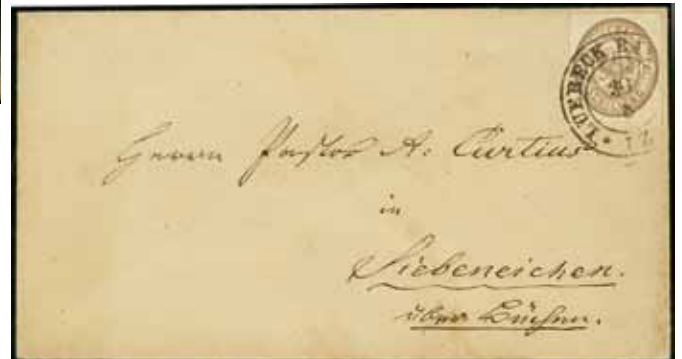 LUEBECK
Herrn Pastor A. Curtius
in
Siebeneichen.
über Büchen.